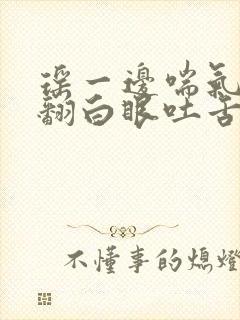 瑶一邊喘氣
翻白眼吐舌
不懂事的熄燈